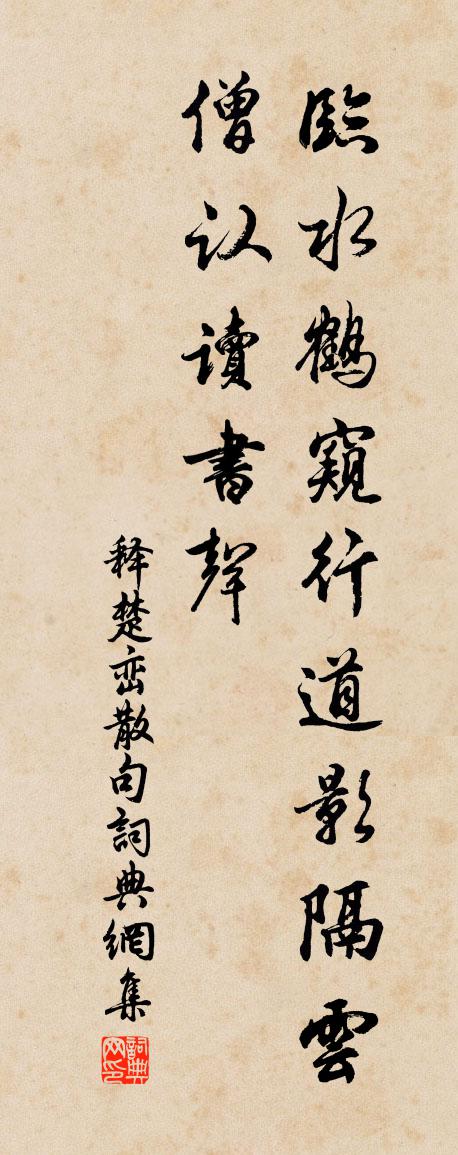 臨水鶴窺行道影隔雲
僧认讀書聲
释楚峦散句詞典網集
詞典网印